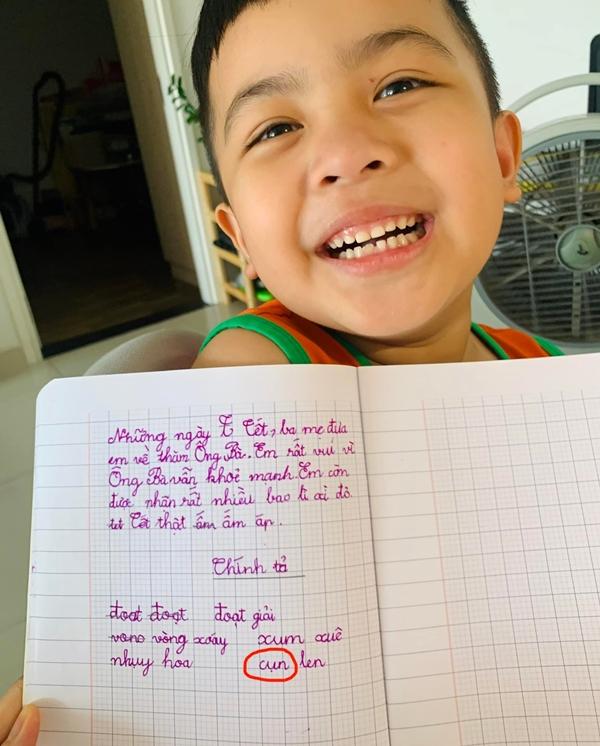 Những ngày T Tết, ba mẹ đưa
em về thăm Ông Bà. Em rất vui vì
Ông Bà vẫn khoẻ mạnh. Em còn
được nhận rất nhiều bao lì xì đỏ.
tet Tết thật ấm ấm áp.
Chính tả
đoạt đoạt đoạt giải
vong vòng xoáy xum xuê
nhụy hoa cụn len